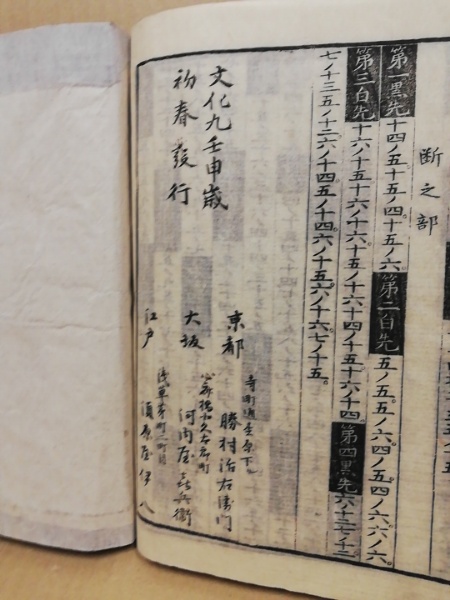 断之部
第一黒先 十四ノ五。十五ノ四。十五ノ六。第二白先 五ノ五。五ノ六。四ノ五。四ノ六。六ノ六。
第三白先 十六ノ十五。十六ノ十六。十五ノ十六。十四ノ十五。十四ノ十四 第四黒先 六ノ十二。七ノ十二
七ノ十三。五ノ十二。六ノ十四。五ノ十四。六ノ十五。六ノ十六。七ノ十五。
文化九壬申歳
初春發行
京都
寺町通松原下
勝村治右衛門
大坂
心斎橋北久太郎町
河内屋喜兵衛
江戸
浅草茅町二町目
須原屋伊八